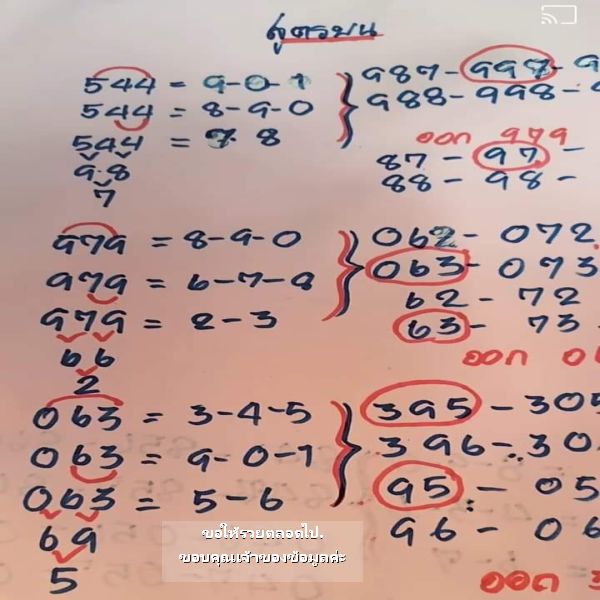 สูตรบน
544 = 9-0-1
987-997-9
544 = 8-9-0
988-998-9
544 = 7 8
ออก 979
9.8
87 - 97 -
7
88 - 98 -
979 = 8-9-0
062- 072
979 = 6-7-8
063- 073
979 = 2-3
62 - 72
66
63 - 73
2
ออก 0
063 = 3-4-5
395 - 305
063 = 9-0-1
396- 30
063 = 5-6
95 - 05
69
96 - 06
5
ออก 3
ขอให้รวยตลอดไป.
ขอบคุณเจ้าของข้อมูลค่ะ